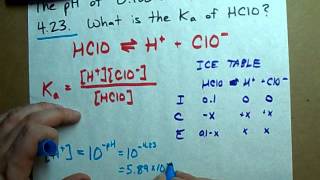 The pH of 0.100
4.23. What is the Ka of HClO?
HClO ⇌ H⁺ + ClO⁻
Ka = [H⁺][ClO⁻]
[HClO]
ICE TABLE
HClO ⇌ H⁺ + ClO⁻
I 0.1 0 0
C -x +x +x
E 0.1-x x x
[H⁺] = 10^-pH = 10^-4.23
= 5.89 x 10